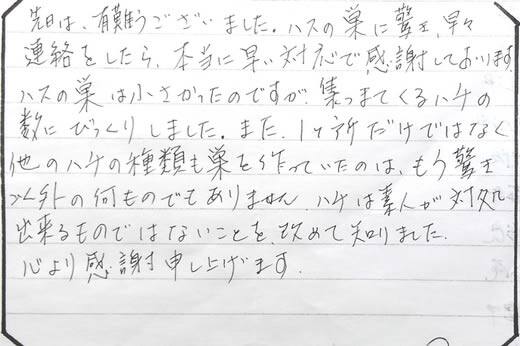 先日は、有難うございました。ハスの巣に驚き、早々
連絡をしたら、本当に早い対応で感謝しております。
ハスの巣は小さかったのですが、集まてくるハチの
数にびっくりしました。また、1ヶ所だけではなく
他のハチの種類も巣を作っていたのは、もう驚き
以外の何ものでもありません。ハチは素人が対処
出来るものではないことを、改めて知りました。
心より感謝申し上げます。